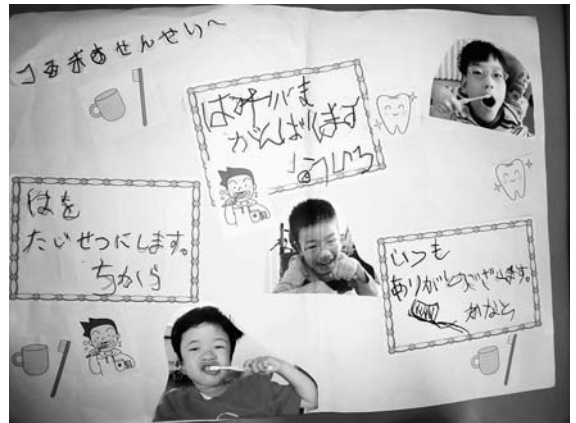 せんせいへ
はみがきを
がんばります
はを
たいせつにします。
ちから
いつも
ありがとうございます。
かなと